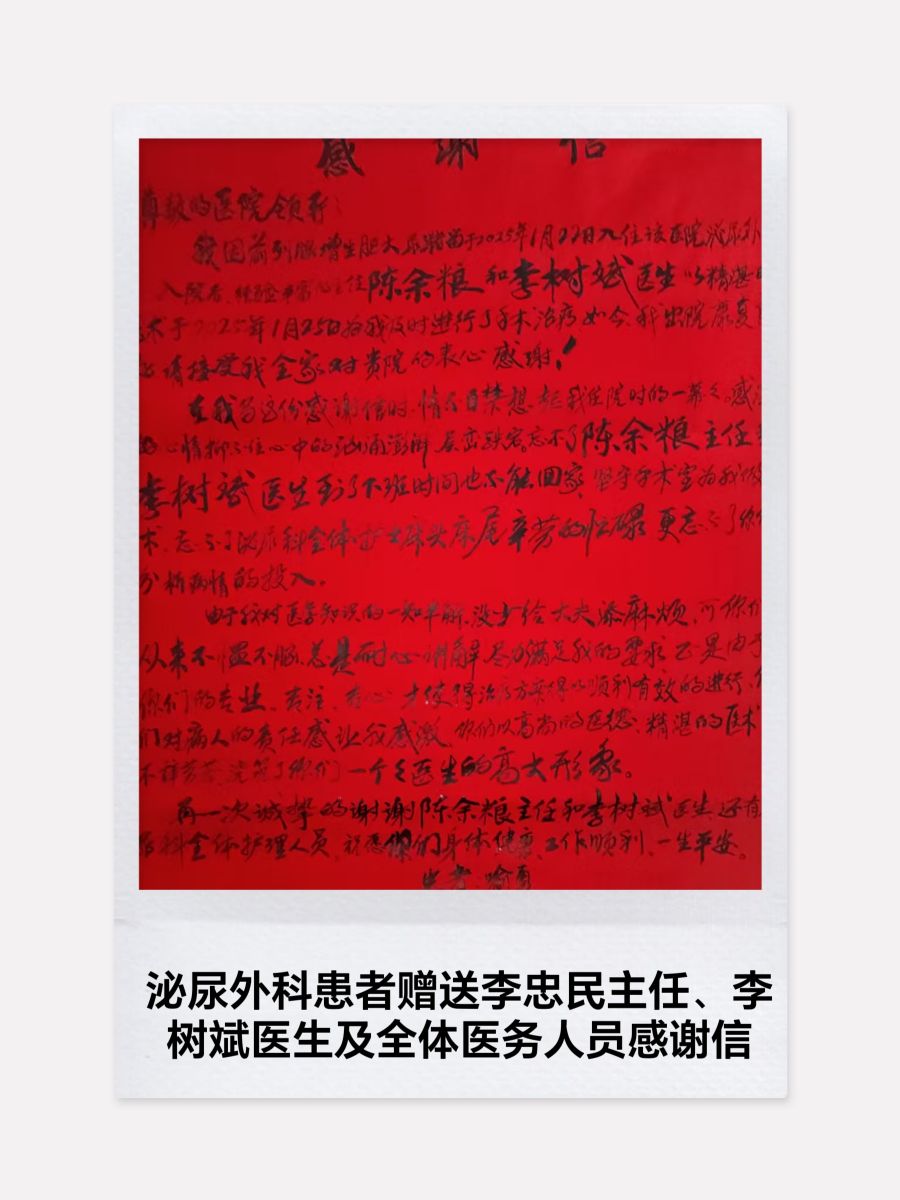 感谢信
尊敬的医院领导:
我因前列腺增生胆大尿潴留于2025年1月22日入住该医院泌尿外
入院后,经验丰富心主任陈余粮和李树斌医生以精湛
术于2025年1月25日为我及时进行了手术治疗如今我出院康复
请接受我全家对贵院的衷心感谢!
在我写这份感谢信时,情不自禁想起我住院时的一幕幕。感
心情抑不住心中的汹涌澎湃 忘不了陈余粮主任
李树斌医生到了下班时间也不能回家,坚守手术室为我做
术,忘不了泌尿科全体护士床头床尾辛劳的忙碌更忘不了你们
分析病情的投入。
由于我对医学知识的一知半解,没少给大夫添麻烦,可你们
从来不愠不恼,总是耐心讲解尽力满足我的要求正是由于
你们的专业、专注、专心才使得治疗方案得以顺利有效的进行,你
们对病人的责任感让我感激,你们以高尚的医德、精湛的医术
不辞劳苦,完美了你们一个个医生的高大形象。
再一次诚挚的谢谢陈余粮主任和李树斌医生还有
尿科全体护理人员,祝愿你们身体健康、工作顺利、一生平安。
患者:喻勇
泌尿外科患者赠送李忠民主任、李
树斌医生及全体医务人员感谢信